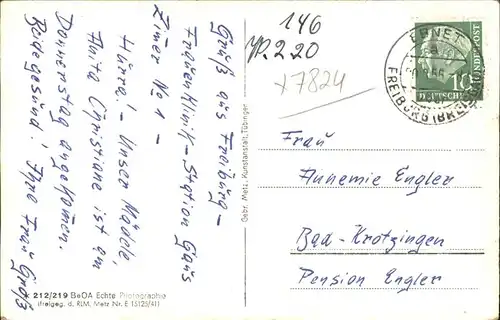 Gruß aus Freiburg-
Frauenklinik-Station Gans
Zimer No 1 -
Hurra! - Unser Mädele,
Anita Christiane ist am
Donnerstag angekomen.
Beide gesund, Ihre Frau Groß
212/219 BeOA Echte Photographie
(freigeg. d. RLM. Metz Nr. E 15125/41)
Gebr. Metz, Kunstanstalt, Tübingen
146
2.20
17824
EBNET
FREIBURG (BREISGAU)
10
DEUTSCHE BUNDESPOST
Frau
Annemie Engler
Bad-Krotzingen
Pension Engler